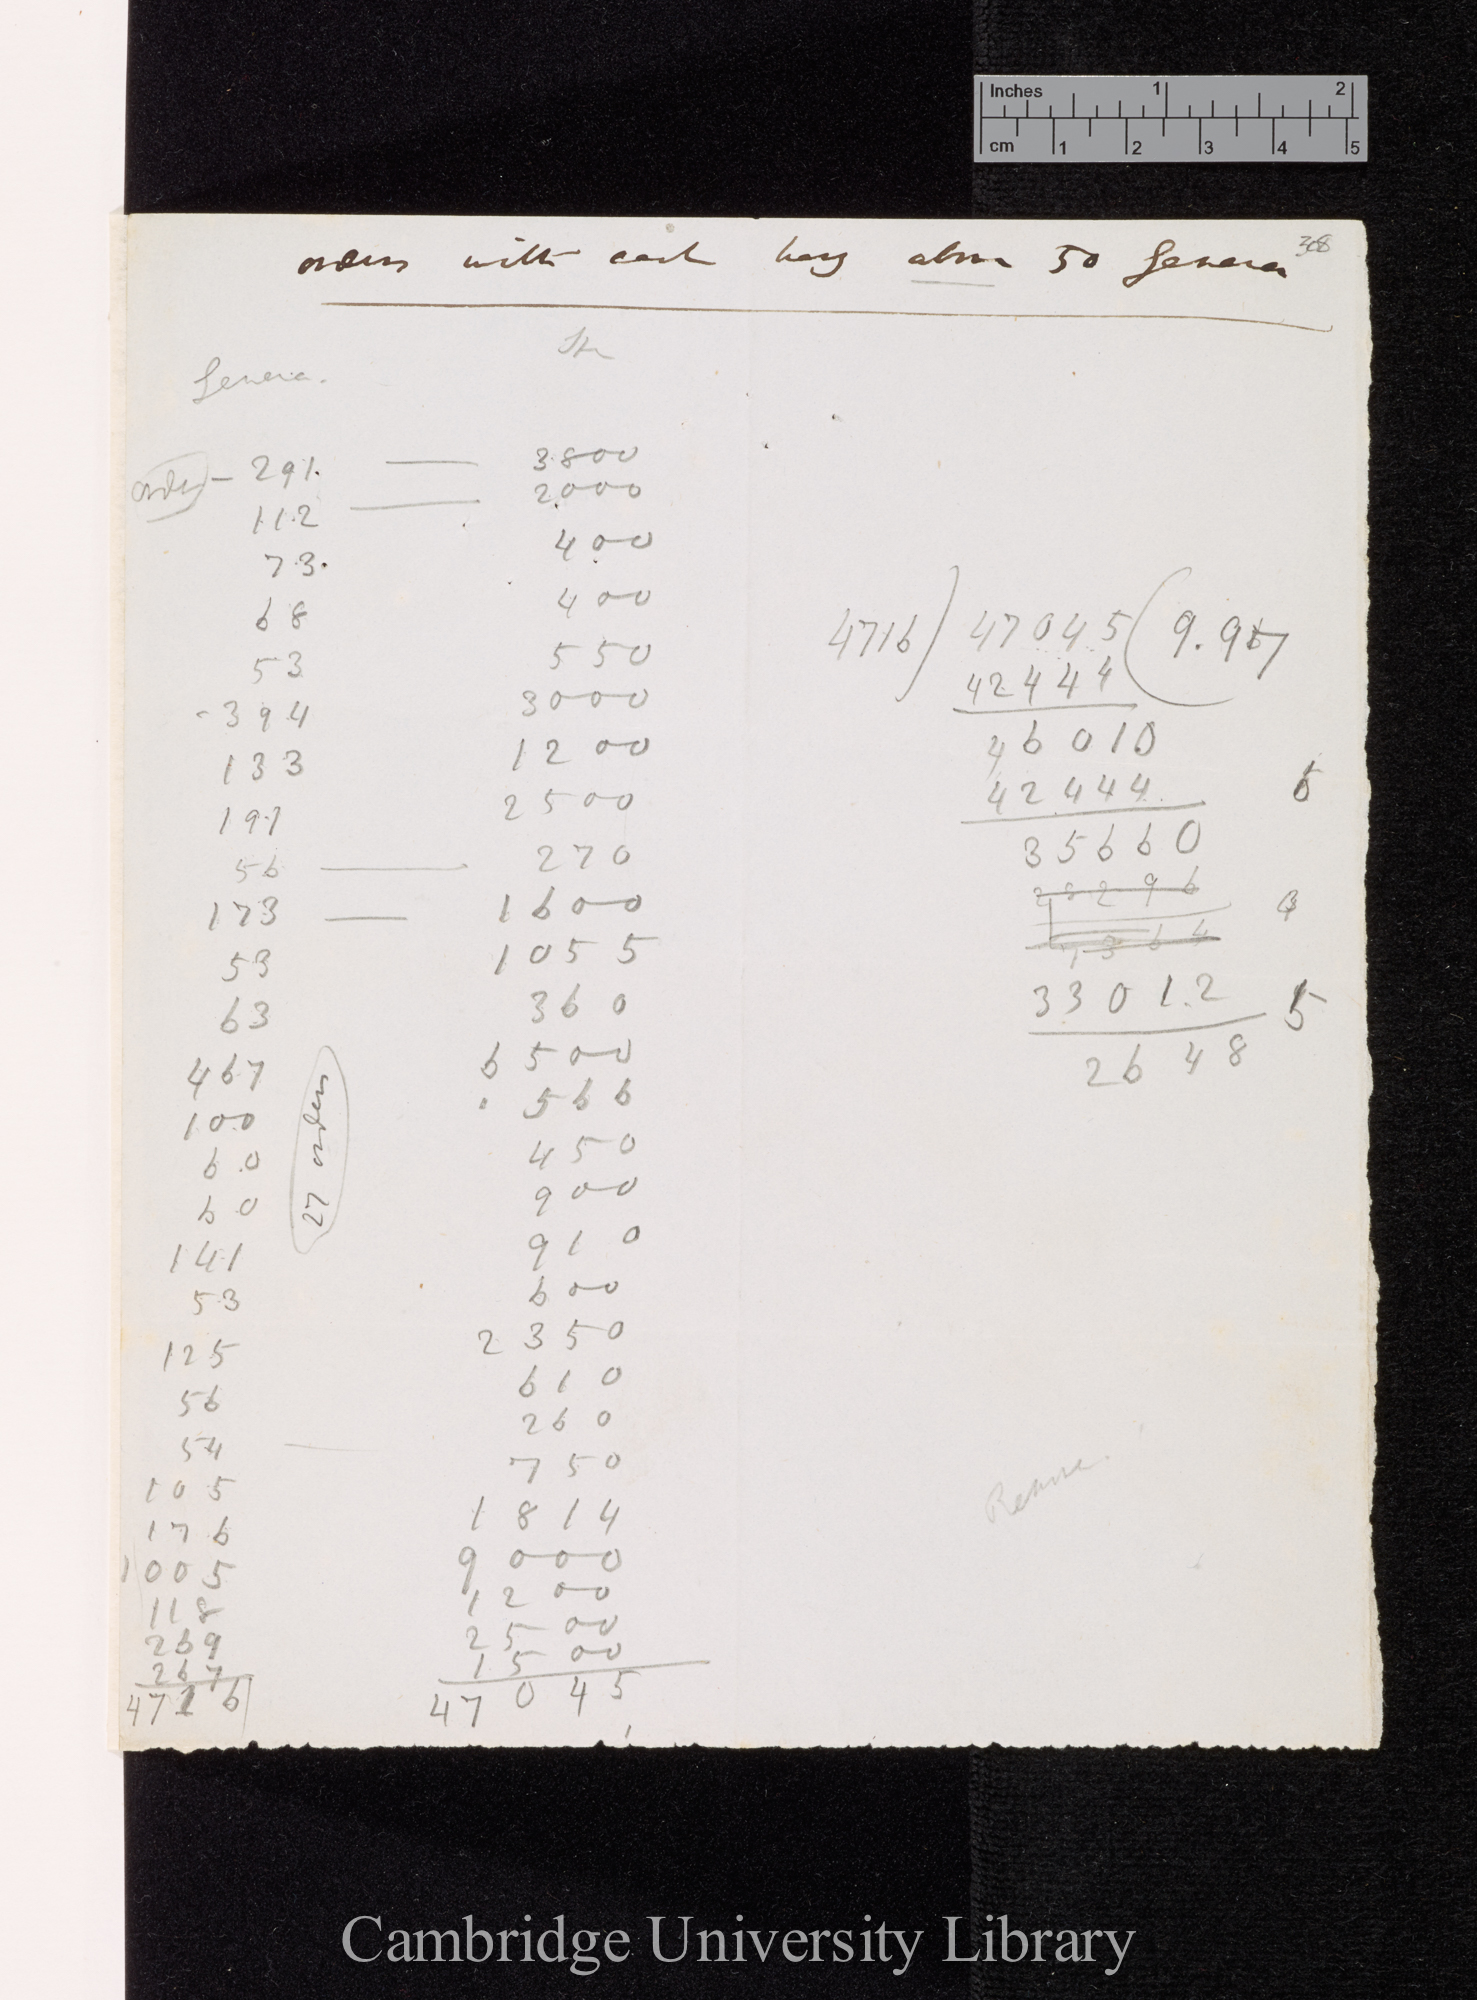 Inches 1 2
cm 1 2 3 4 5
308
orders with each having above 50 Genera
Genera.
order – 291. — 3800
112 — 2000
73. 400
68 400
53 550
- 394 3000
133 1200
191 2500
56 — 270
173 — 1600
53 1055
63 360
467 6500
100 566
60 450
60 900
141 910
53 600
125 2350
56 610
54 260
105 750
176 1814
1005 9000
118 1200
269 2500
267 1500
4716 47045
27 orders
4716) 47045 (9.97
42444
46010
42444
35660
28296
7364
33012
2648
Cambridge University Library